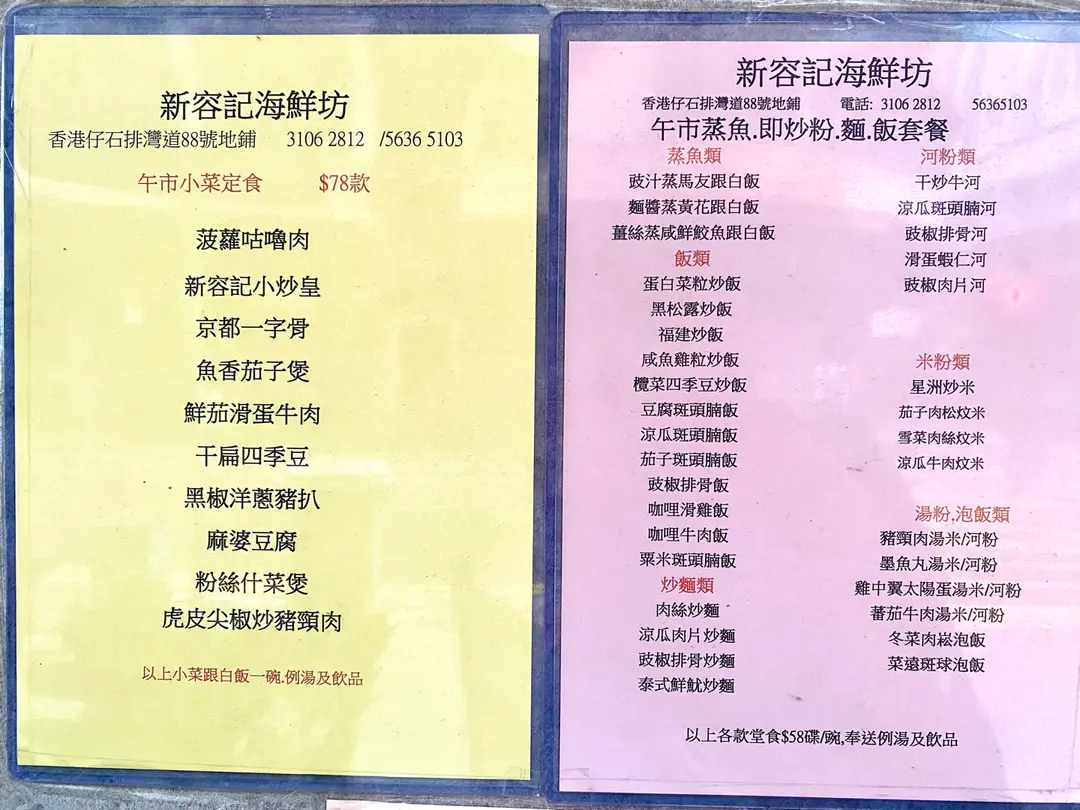 新容記海鮮坊
香港仔石排灣道88號地鋪 3106 2812 /5636 5103
午市小菜定食 $78款
菠蘿咕嚕肉
新容記小炒皇
京都一字骨
魚香茄子煲
鮮茄滑蛋牛肉
干扁四季豆
黑椒洋蔥豬扒
麻婆豆腐
粉絲什菜煲
虎皮尖椒炒豬頸肉
以上小菜跟白飯一碗.例湯及飲品
新容記海鮮坊
香港仔石排灣道88號地鋪 電話: 3106 2812 56365103
午市蒸魚.即炒粉.麵.飯套餐
蒸魚類
豉汁蒸馬友跟白飯
麵醬蒸黃花跟白飯
薑絲蒸咸鮮鮫魚跟白飯
飯類
蛋白菜粒炒飯
黑松露炒飯
福建炒飯
咸魚雞粒炒飯
欖菜四季豆炒飯
豆腐斑頭腩飯
涼瓜斑頭腩飯
茄子斑頭腩飯
豉椒排骨飯
咖哩滑雞飯
咖哩牛肉飯
粟米斑頭腩飯
炒麵類
肉絲炒麵
涼瓜肉片炒麵
豉椒排骨炒麵
泰式鮮魷炒麵
河粉類
干炒牛河
涼瓜斑頭腩河
豉椒排骨河
滑蛋蝦仁河
豉椒肉片河
米粉類
星洲炒米
茄子肉松炆米
雪菜肉絲炆米
涼瓜牛肉炆米
湯粉.泡飯類
豬頸肉湯米/河粉
墨魚丸湯米/河粉
雞中翼太陽蛋湯米/河粉
蕃茄牛肉湯米/河粉
冬菜肉崧泡飯
菜遠斑球泡飯
以上各款堂食$58碟/碗,奉送例湯及飲品